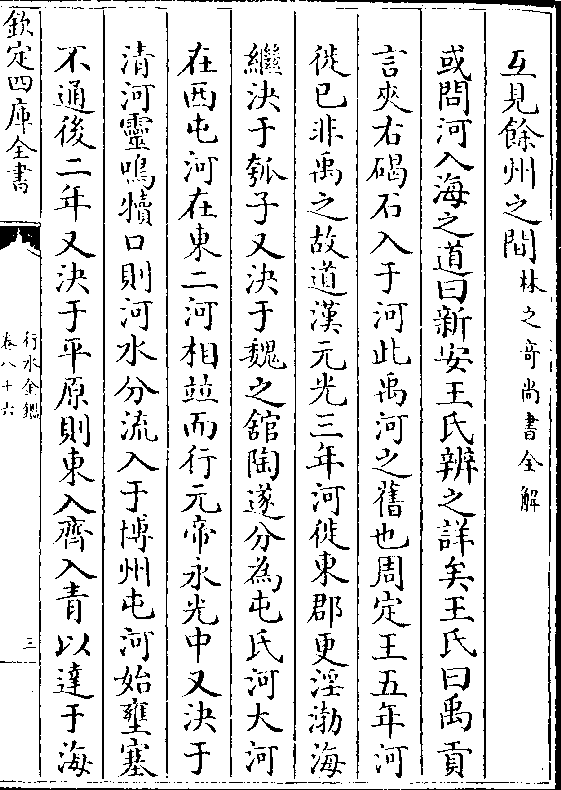 互見餘州之間林之奇尚書全解
或問河入海之道曰新安王氏辨之詳矣王氏曰禹貢
言夾右碣石入于河此禹河之舊也周定王五年河
徙已非禹之故道漢元光三年河徙東郡更淫渤海
繼決于瓠子又決于魏之舘陶遂分為屯氏河大河
在西屯河在東二河相竝而行元帝永光中又決于
清河靈鳴犢口則河水分流入于博州屯河始壅塞
不通後二年又決于平原則東入齊入青以達于海
欽定四庫全書
行水金鑑
卷八十六
三